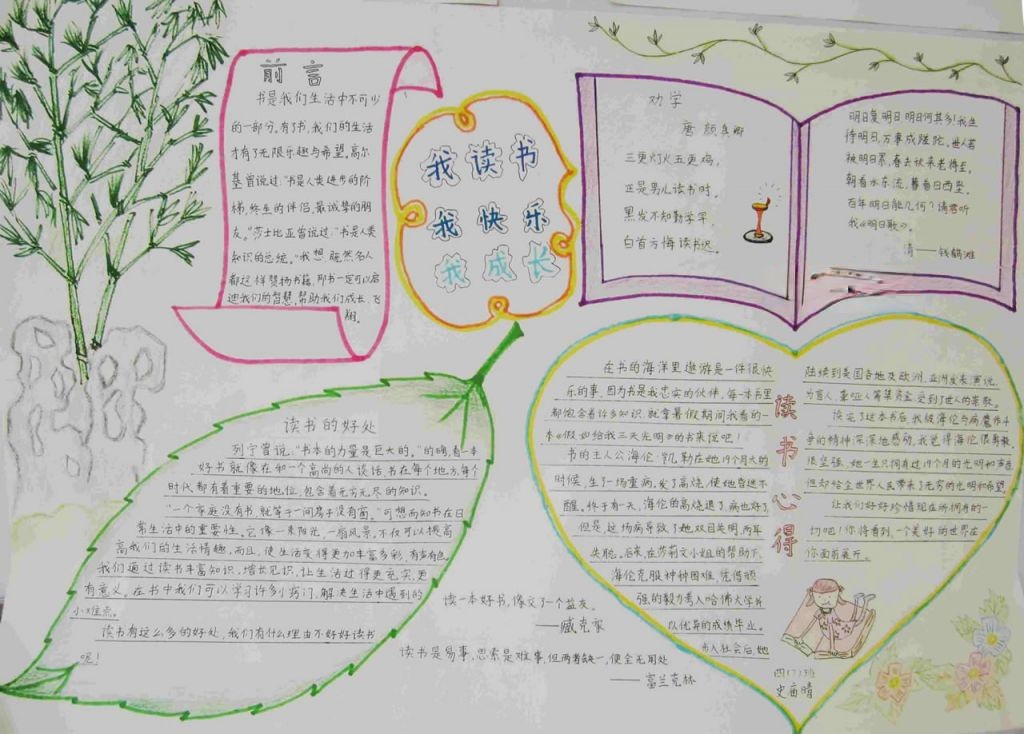 前言
书是我们生活中不可少
的一部分。有了书,我们的生活
才有了无限乐趣与希望。高尔
基曾说过:“书是人类进步的阶
梯,终生的伴侣,最诚挚的朋
友。”莎士比亚曾说过:“书是人类
知识的总统。”我想,既然名人
都这样赞扬书籍,那书一定可以启
迪我们的智慧,帮助我们成长、飞
翔。
我读书
我快乐
我成长
劝学
唐 颜真卿
三更灯火五更鸡,
正是男儿读书时,
黑发不知勤学早,
白首方悔读书迟。
明日复明日,明日何其多!我生
待明日,万事成蹉跎。世人若
被明日累,春去秋来老将至。
朝看水东流,暮看日西坠。
百年明日能几何?请君听
我《明日歌》。
清——钱鹤滩
读书的好处
列宁曾说,“书本的力量是巨大的。”的确,看一本
好书就像在和一个高尚的人谈话。书在每个地方,每个
时代都有着重要的地位,包含着无穷无尽的知识。
“一个家庭没有书,就等于一间房子没有窗。”可想而知书在日
常生活中的重要性。它像一束阳光,一扇风景,不仅可以提高
高我们的生活情趣,而且,使生活变得更加丰富多彩,有声有色。
我们通过读书丰富知识,增长见识,让生活过得更充实,更
有意义。在书中我们可以学习许多小窍门,解决生活中遇到的
小难点。
读书有这么多的好处,我们有什么理由不好好读书
呢!
读一本好书,像交了一个益友。
——臧克家
读书是易事,思索是难事,但两者缺一,便全无用处
——富兰克林
读书心得
在书的海洋里遨游是一件很快
乐的事,因为书是我忠实的伙伴,每一本书里
都饱含着许多知识,就拿暑假期间我看的一
本《假如给我三天光明》的书来说吧!
书的主人公海伦·凯勒在她19个月大的
时候,生了一场重病,发了高烧,使她昏迷不
醒。终于有一天,海伦的高烧退了,病也好了,
但是,这场病导致了她双目失明,两耳
失聪。后来,在莎莉文小姐的帮助下,
海伦克服种种困难,凭借顽
强的毅力考入哈佛大学,并
以优异的成绩毕业。
步入社会后,她
陆续到美国各地及欧洲、亚洲发表演说,
为盲人、聋哑人筹集资金,受到了世人的赞歌。
读完了这本书后,我被海伦与病魔作斗
争的精神深深地感动,我觉得海伦很勇敢,
很坚强,她一生只拥有过19个月的光明和声音,
但却给全世界人民带来了无穷的光明和希望。
让我们好好珍惜现在所拥有的一
切吧!你将看到,一个美好的世界在
你面前展开。
四(7)班
史雨晴